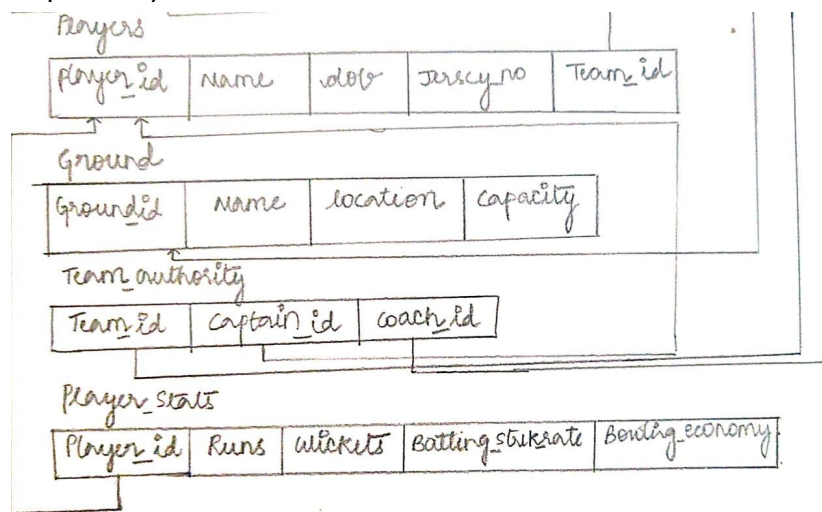 Players
Player_id Name dob Jersey_no Team_id
Ground
Groundid Name location capacity
Team_authority
Team_id Captain_id coach_id
Player_stats
Player_id Runs Wickets Batting_strikrate Bowling_economy